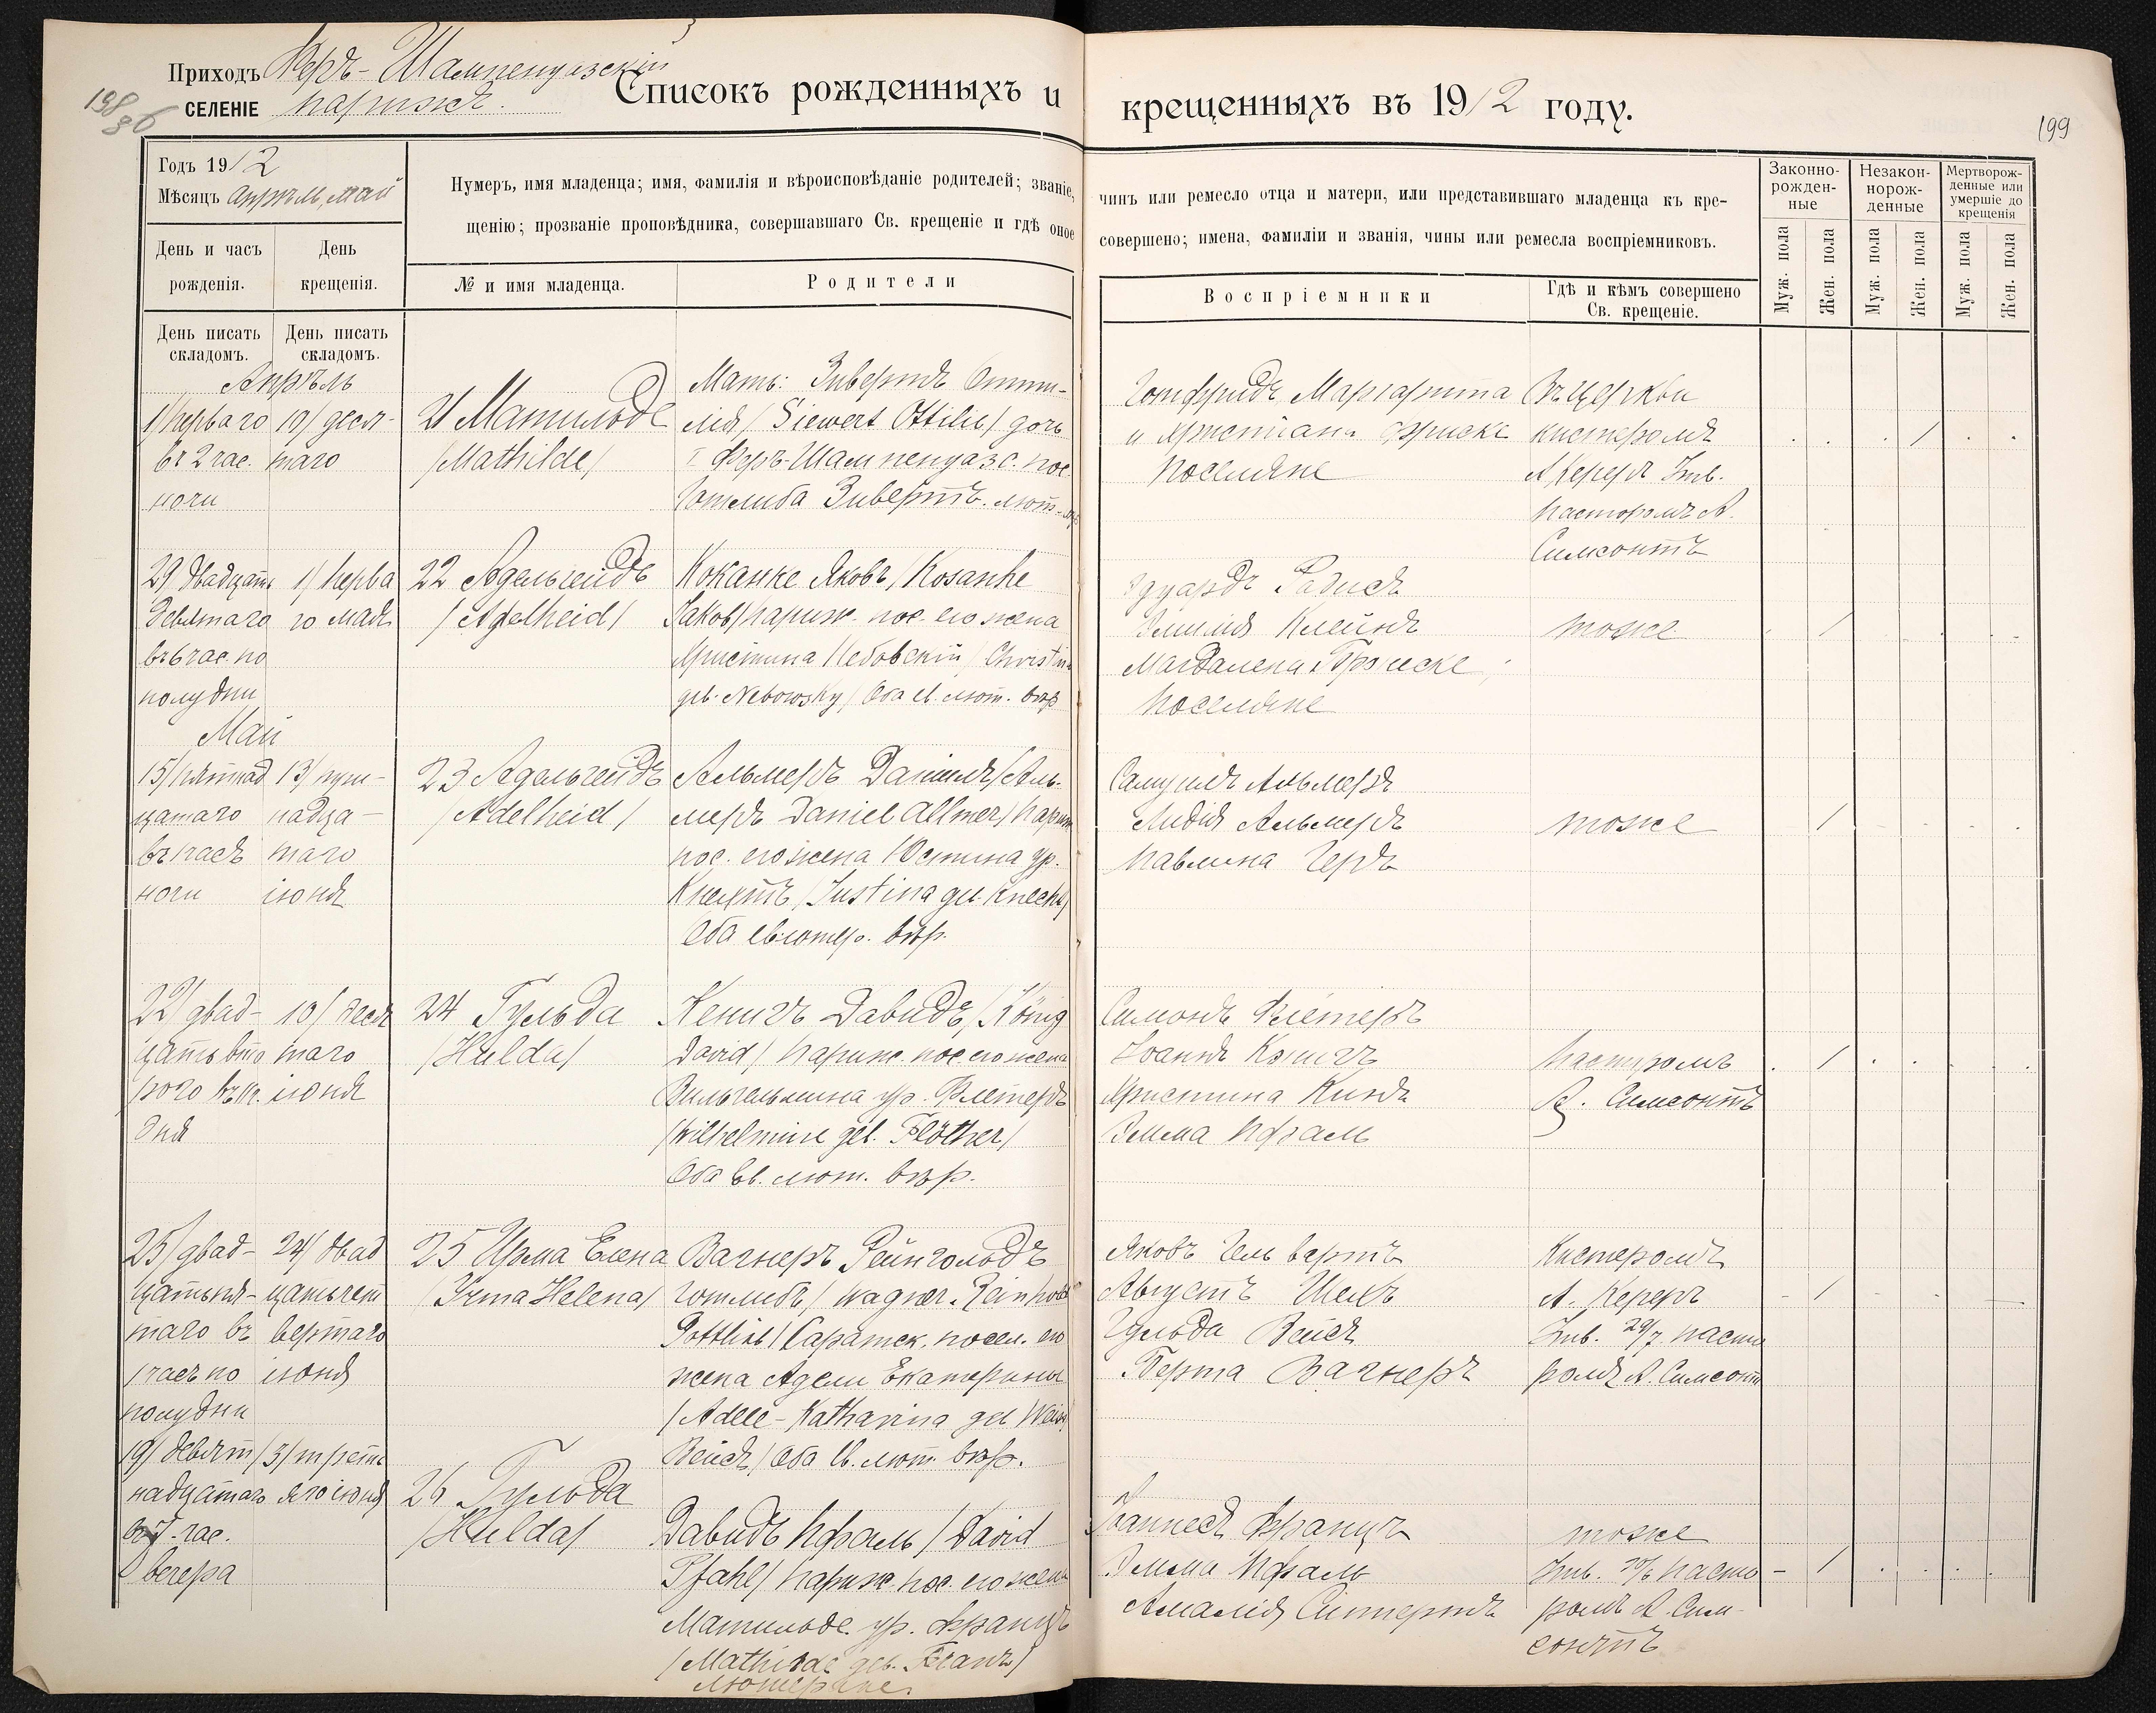 Приходъ Феръ-Шампенуазскій
СЕЛЕНІЕ Парижъ.
Списокъ рожденныхъ и крещенныхъ въ 1912 году.
198
86
199
Годъ 1912
Мѣсяцъ Апрѣль, Май
Нумеръ, имя младенца; имя, фамилія и вѣроисповѣданіе родителей; званіе, чинъ или ремесло отца и матери, или представившаго младенца къ кре-
щенію; прозваніе проповѣдника, совершавшаго Св. крещеніе и гдѣ оное совершено; имена, фамиліи и званія, чины или ремесла воспріемниковъ.
Законно-
рожден-
ные
Незакон-
норож-
денные
Мертворож-
денные или
умершіе до
крещенія
День и часъ
рожденія.
День
крещенія.
№ и имя младенца.
Родители
Воспріемники
Гдѣ и кѣмъ совершено
Св. крещеніе.
Муж. пола
Жен. пола
Муж. пола
Жен. пола
Муж. пола
Жен. пола
День писать
складомъ.
День писать
складомъ.
Апрѣль
1/ перваго
въ 2 час.
ночи
10/ деся-
таго
21 Матильде
/Mathilde/
Мать: Зивертъ Отти-
лія / Siewert Ottilie / дочь
Феръ-Шампенуазс. пос.
Готлиба Зивертъ. лют.
Готфридъ, Маргарита
и Христіанъ Фриске
поселяне
Въ церкви
кистеромъ
А. Кереръ Утв.
пасторомъ А.
Симсонтъ
29 двадцать
девятаго
въ 6 час. по
полудни
1/ перва
го мая
22 Адельгейдъ
/Adelheid/
Козанке Яковъ / Kosanke
Jakob / париж. пос. его жена
Христина Небовскій / Christina
geb. Nebowsky / Оба ев. лют. вѣр
Эдуардъ Радисъ
Эмилія Клейнъ
Магдалена Фриске
поселяне
тоже
Май
15/ пятнад
цатаго
въ 1 часъ
ночи
13/ три-
надца-
таго
іюня
23 Адельгейдъ
/Adelheid/
Альмеръ Даніилъ / Аль-
меръ Daniel Allmer / париж
пос. его жена Юстина ур.
Кнехтъ / Justina geb. Knecht/
Оба ев. лютер. вѣр.
Самуилъ Альмеръ
Лидія Альмеръ
Павлина Геръ
тоже
22/ двад-
цать вто
рого въ 1 ч.
дня
10/ деся
таго
іюня
24 Гульда
/Hulda/
Кенигъ Давидъ, / König
David / париж. пос. его жена
Вильгельмина ур. Флетеръ
/Wilhelmine geb. Flöther/
Оба ев. лют. вѣр.
Симонъ Флетеръ
Іоаннъ Кенигъ
Христина Кинъ
Эмма Пфаль
пасторомъ
А. Симсонтъ
25/ двад-
цать пя-
таго въ
1 часъ по
полудни
24/ двад
цать чет
вертаго
іюня
25 Ирма Елена
/Irma Helena/
Вагнеръ Рейнгольдъ
Готлибъ / Wagner Reinhold
Gottlieb / Саратск. посел. его
жена Адели Екатерины
/Adele-Katharina geb Weiss/
Вейсъ / Оба ев. лют. вѣр.
Яковъ Гельвертъ
Августъ Шехъ
Гульда Вейсъ
Берта Вагнеръ
Кистеромъ
А. Кереръ
Утв. 29/7. пасто
ромъ А. Симсонт
19/ девят
надцатаго
7 час.
вечера
/3/ треть
яго іюня
26 Гульда
/Hulda/
Давидъ Пфаль / David
Pfahl / париж. пос. его жена
Матильде ур. Францъ
/Mathilde geb. Franz/
лютеране.
Іоаннесъ Францъ
Эмма Пфаль
Амалія
тоже
Утв. пасто
ромъ А. Сим-
сонтъ